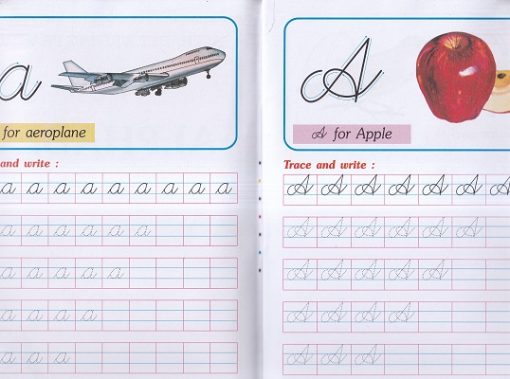 a
for aeroplane
and write :
a a a a a a a a a
a a a a a a
a a a a a
a a a a
a a a
A
A for Apple
Trace and write :
A A A A A A A
A A A A A A
A A A A A
A A A A
A A A